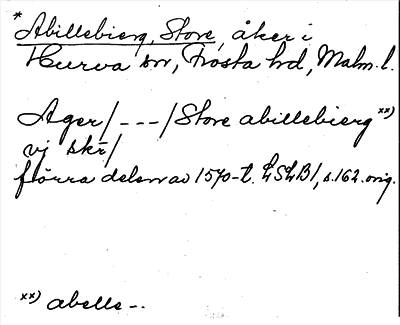 * Abillebierg, Store, åker i
Hurva sn, Frosta hd, Malm. l.
Ager/---/Store abillebierg xx)
vj skr/
förra delen av 1570-t. LSLB1, s.162. orig.
xx) abelle--